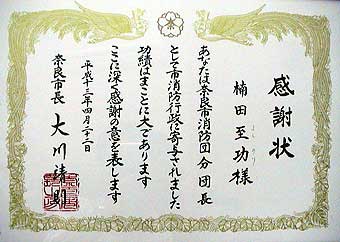 感謝状
楠田至功様
あなたは奈良市消防団分団長
として市消防行政に寄与されました
功績はまことに大であります
ここに深く感謝の意を表します
平成十三年四月二十二日
奈良市長 大川靖則